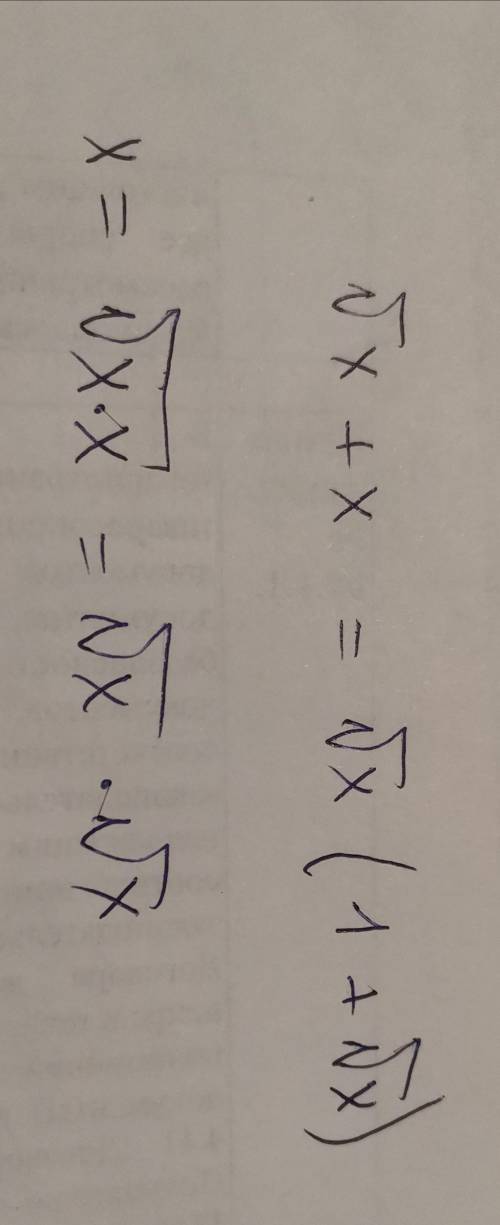 √x + x = √x (1 + √x)
x = √(x·x) = √x · √x